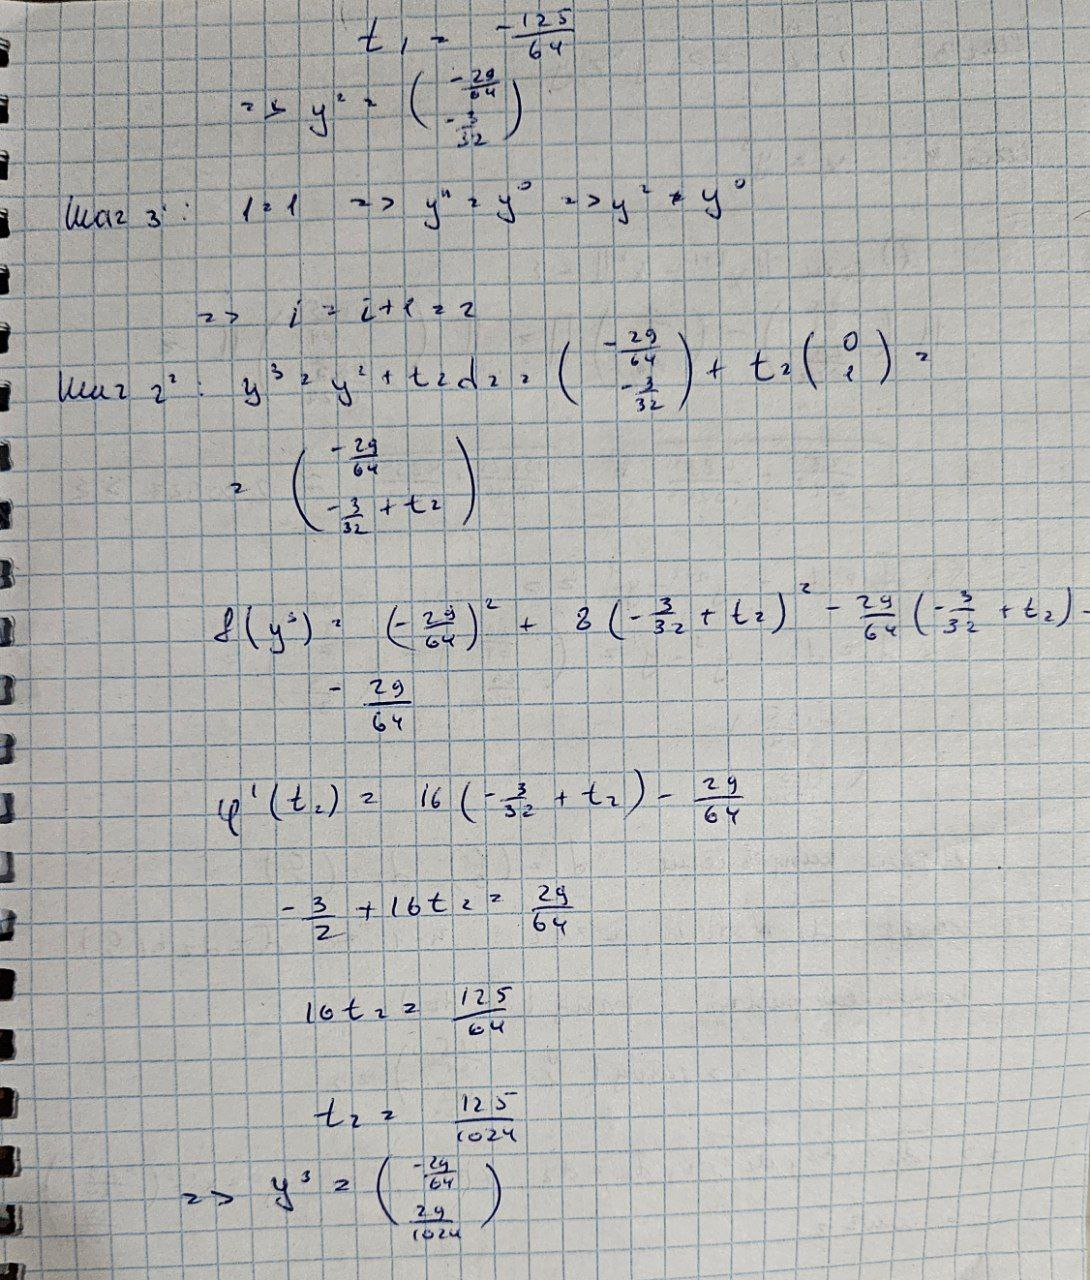 t₁ = -125/64
=> y² = (-29/64; -3/32)
Шаг 3¹: 1=1 => yⁿ = y⁰ => y² ≠ y⁰
=> i = i+1 = 2
Шаг 2²: y³ = y² + t₂d₂ = (-29/64; -3/32) + t₂(0; 1) =
= (-29/64; -3/32 + t₂)
f(y³) = (-29/64)² + 8(-3/32 + t₂)² - 29/64(-3/32 + t₂) -
- 29/64
φ'(t₂) = 16(-3/32 + t₂) - 29/64
-3/2 + 16t₂ = 29/64
16t₂ = 125/64
t₂ = 125/1024
=> y³ = (-29/64; 29/1024)